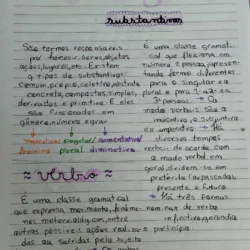 substantivos
São termos responsáveis
por nomear seres, objetos,
ações, lugares, etc. Existem
9 tipos de substantivos:
comum, próprio, coletivo, abstrato
concreto, composto, simples,
derivados e primitivo. E eles
são flexionados em
gênero, número e grau
masculino/ singular/ aumentativo/
feminino plural diminutivo
≈ verbo ≈
É uma classe gramatical
que expressa movimento, fenôme-
nos meteorológicos, entre
outras possíveis ações realiza-
das ou sofridas pelo sujeito
É uma classe gramati-
cal que flexiona em
número e pessoa, apresen-
tando formas diferentes
para o singular e o
plural e para 1ª 2ª e
3ª pessoas.
modos verbais são o
indicativo, o subjuntivo
e o imperativo. Há
diversos tempos
verbais de acordo com
o modo verbal em
geral, dividem-se em
pretérito (ou passado)
presente e futuro
Há três formas
nominais do verbo
infinitivo, gerúndio
e particípio